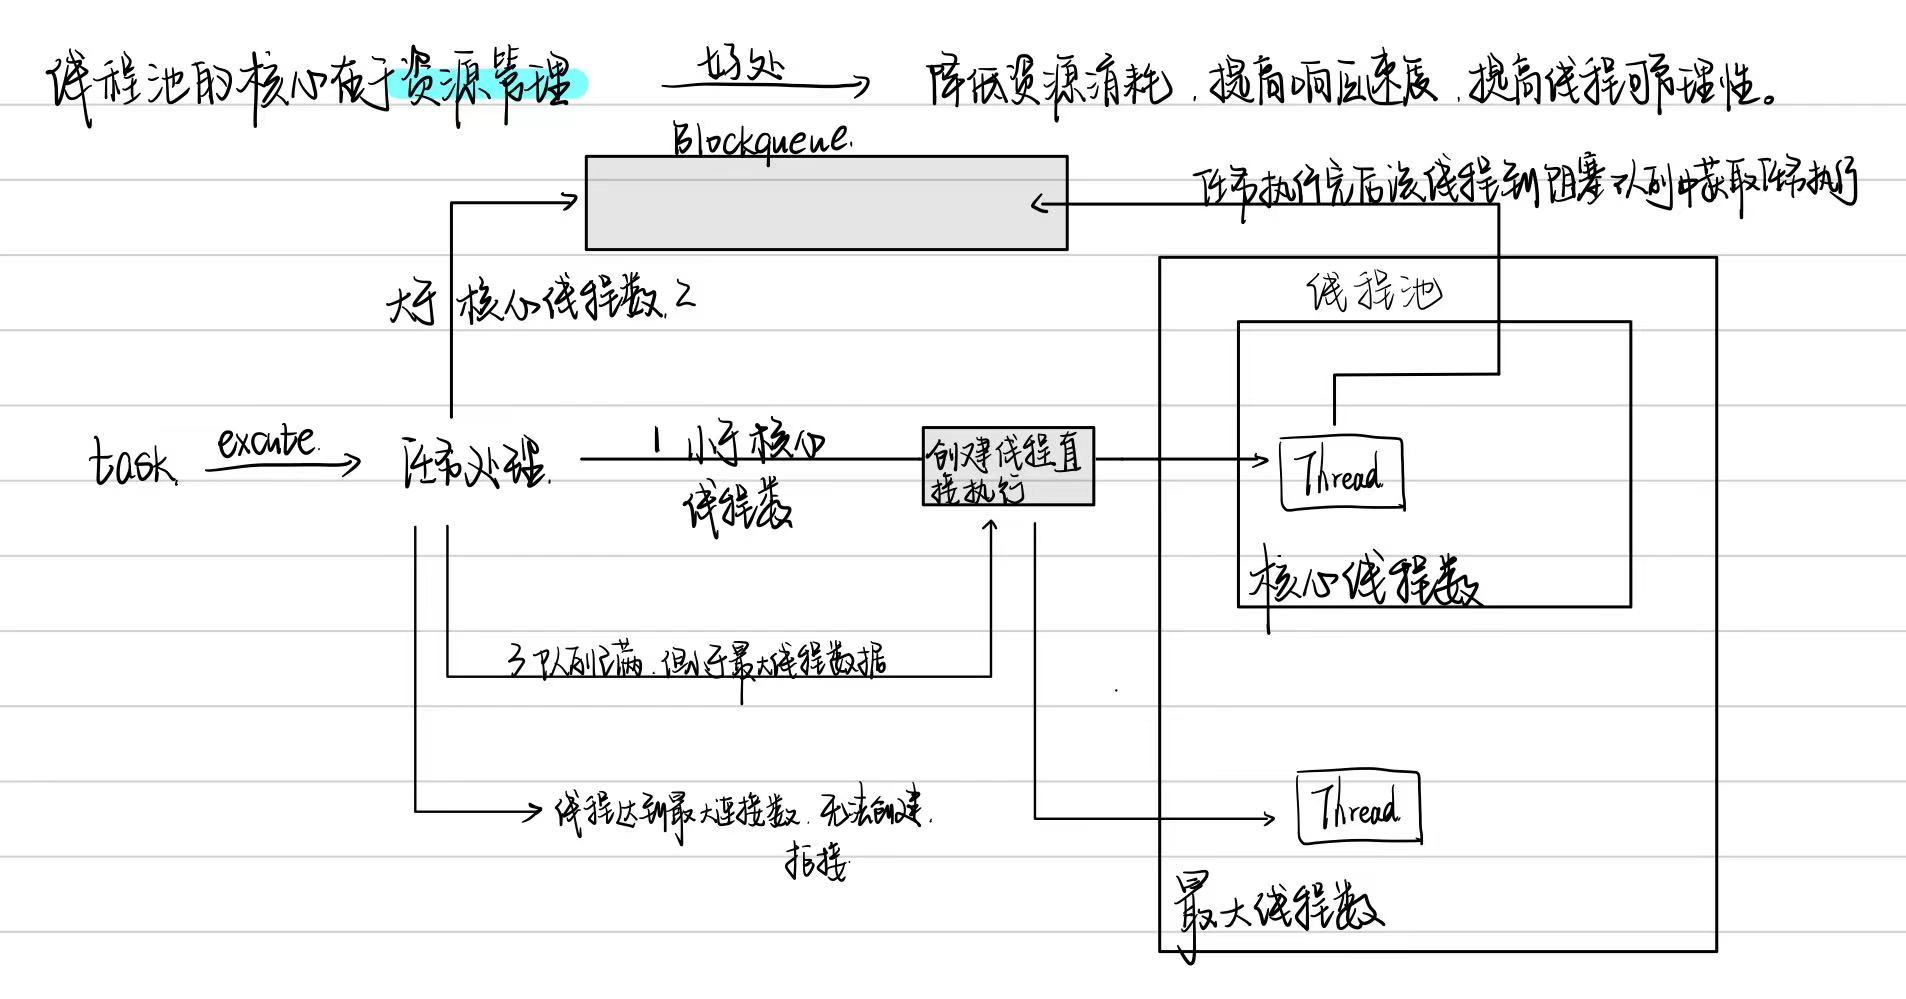 线程池的核心在于资源管理 好处 降低资源消耗,提高响应速度,提高线程可管理性。
Blockqueue.
任务执行完后该线程到阻塞队列中获取任务执行
大于核心线程数.2
线程池
task. excute. 任务处理.
1 小于核心
线程数
创建线程直
接执行
Thread
核心线程数
3 队列已满.但小于最大线程数据
线程达到最大连接数.无法创建.
拒接.
Thread
最大线程数